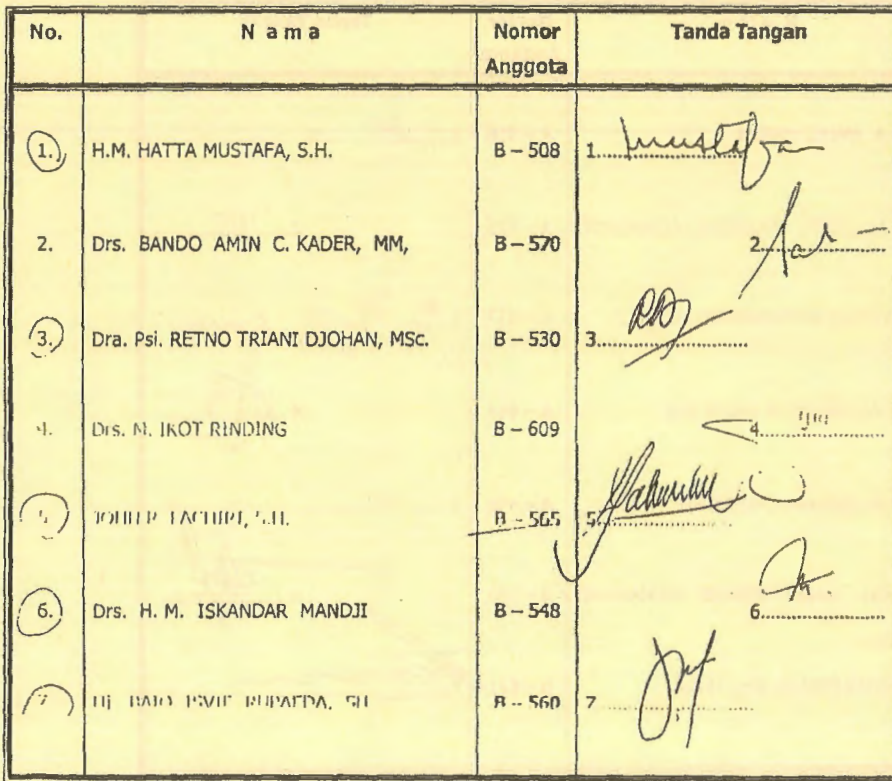 No. N a m a Nomor Anggota Tanda Tangan
1. H.M. HATTA MUSTAFA, S.H. B – 508 1. mustafa
2. Drs. BANDO AMIN C. KADER, MM, B – 570 2.
3. Dra. Psi. RETNO TRIANI DJOHAN, MSc. B – 530 3.
4. Drs. M. IKOT RINDING B – 609 4.
5. B – 565 5.
6. Drs. H. M. ISKANDAR MANDJI B – 548 6.
7. Hj. B – 560 7.